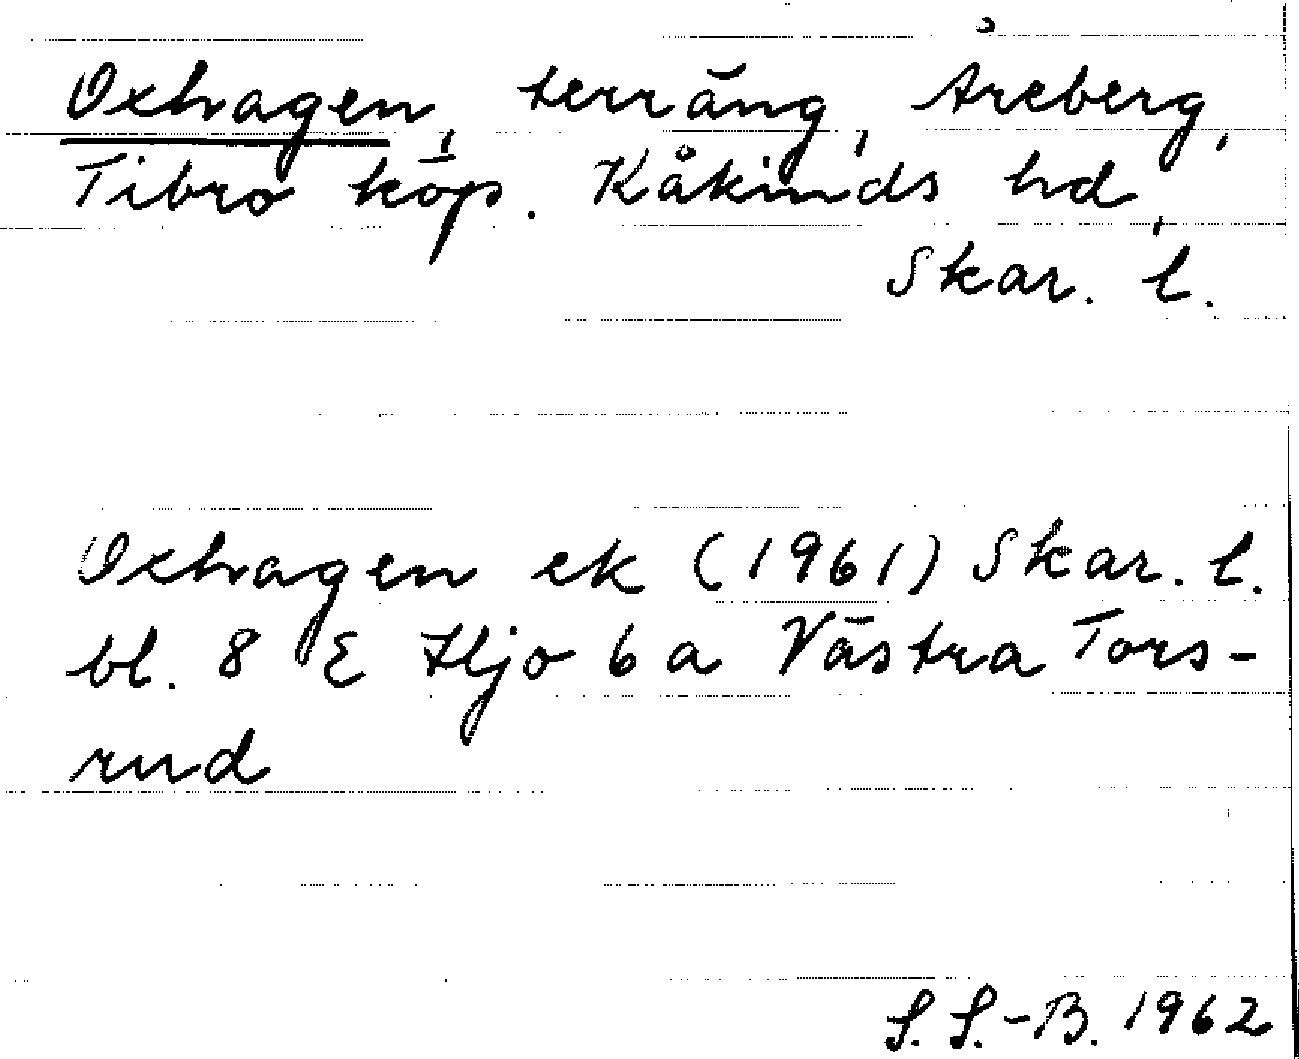 Oxhagen, terräng, Åreberg,
Tibro köp. Kåkinds hd,
Skar. l.
Oxhagen ek (1961) Skar. l.
bl. 8 E Hjo 6 a Västra Tors-
rud
S. S.-B. 1962